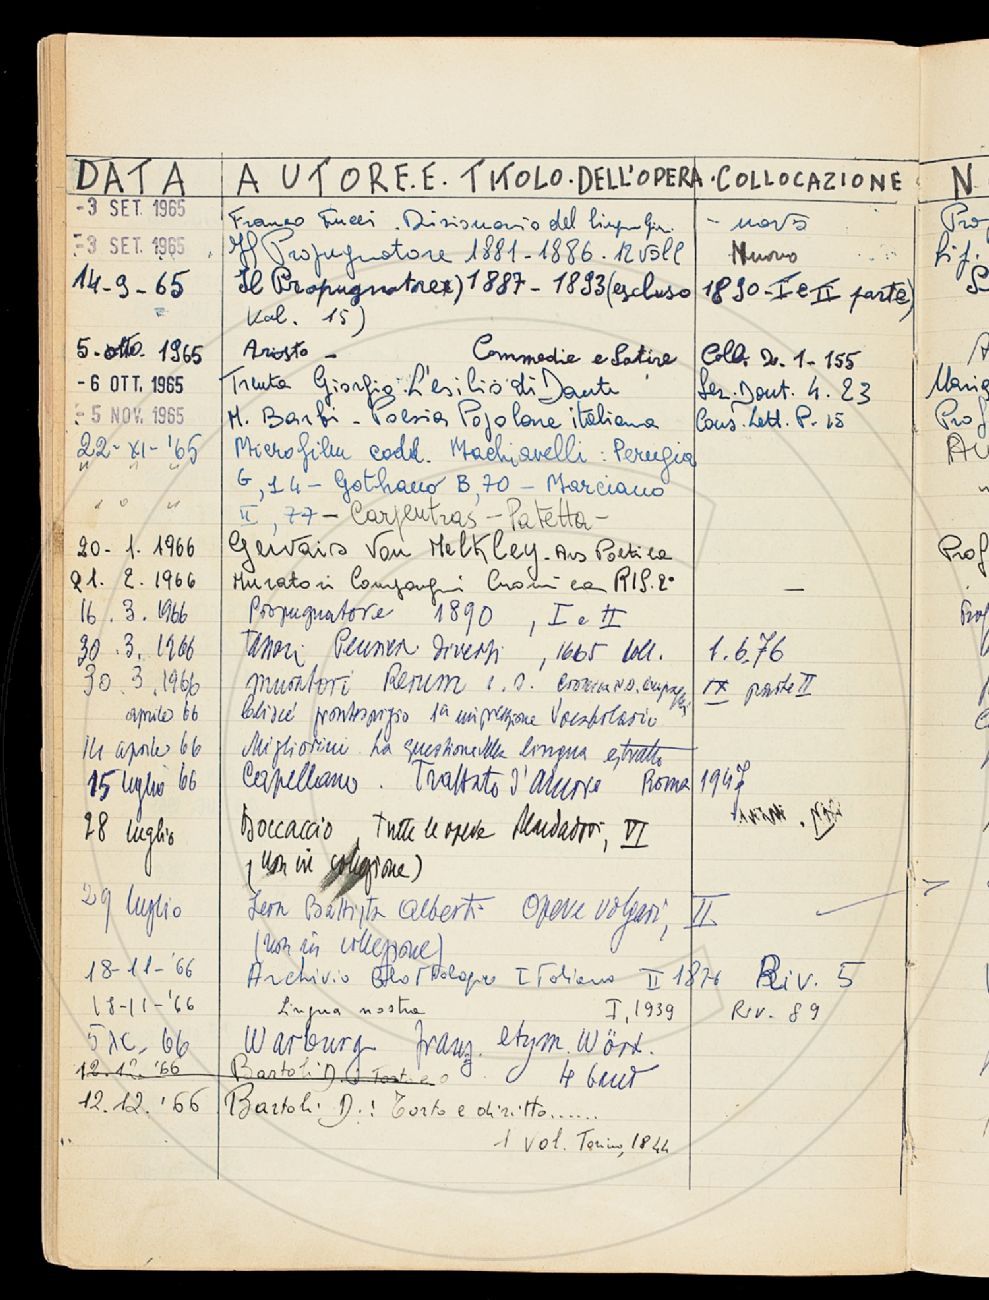 DATA AUTORE.E. TITOLO.DELL'OPERA.COLLOCAZIONE N
-3 SET. 1965 Franco Fucci. Dizionario del - nova Prof
-3 SET. 1965 Il Propugnatore 1881-1886. 12 voll Nuovo
14-9-65 Il Propugnatore 1887-1893 (escluso 1890-I e II parte)
Vol. 15)
5. otto. 1965 Ariosto - Commedie e Satire Coll. De. 1-155
-6 OTT. 1965 Truta Giorgio. L'esilio di Dante Sez. Dant. 4. 23
-5 NOV. 1965 M. Barbi - Poesia Popolare italiana Cons. Lett. P. 15 Prof
22-XI-'65 Microfilm codd. Machiavelli: Perugia
" " " G, 14 - Gothano B, 70 - Marciano
" " " II, 77 - Carpentras - Patetta -
20-1. 1966 Gervais Von Melkley - Ars Poetica Prof
21. 2. 1966 Muratori Compagni Cronica RIS. 2° -
16. 3. 1966 Propugnatore 1890, I e II Prof
30. 3. 1966 Tassoni Pensieri diversi, 1665 1. 6. 76
30. 3. 1966 Muratori Rerum i. s. IX parte II
aprile 66 frontespizio 1a impressione Vocabolario
14 aprile 66 Migliorini La questione della lingua estratto
15 luglio 66 Capellano. Trattato d'Amore Roma 1947
28 luglio Boccaccio, Tutte le opere Mondadori, VI
(non in collezione)
29 luglio Leon Battista Alberti Opere volgari, II
(non in collezione)
18-11-'66 Archivio Glottologico Italiano II 1876 Riv. 5
18-11-'66 Lingua nostra I, 1939 Riv. 89
5 XI. 66 Warburg franz. etym. Wört.
12.12.'66 Bartoli D. 4 band
12.12.'66 Bartoli D.: Torto e diritto......
1 vol. Torino, 1844